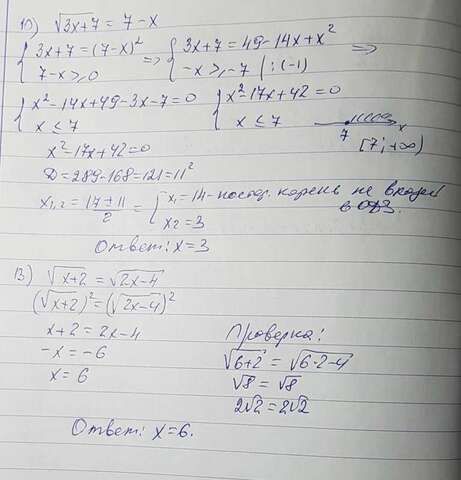 10) √3x+7 = 7-x
{ 3x+7 = (7-x)² => { 3x+7 = 49-14x+x² =>
{ 7-x ≥ 0 { -x ≥ -7 |:(-1)
{ x²-14x+49-3x-7=0 { x²-17x+42=0
{ x ≤ 7 { x ≤ 7 7 x
[7;+∞)
x²-17x+42=0
D=289-168=121=11²
x1,2 = 17±11/2 = [ x1=14- постор. корень не входит
в ОДЗ.
x2=3
Ответ: x=3
13) √x+2 = √2x-4
(√x+2)²=(√2x-4)²
x+2=2x-4
-x=-6
x=6
Проверка:
√6+2 = √6·2-4
√8 = √8
2√2=2√2
Ответ: x=6.